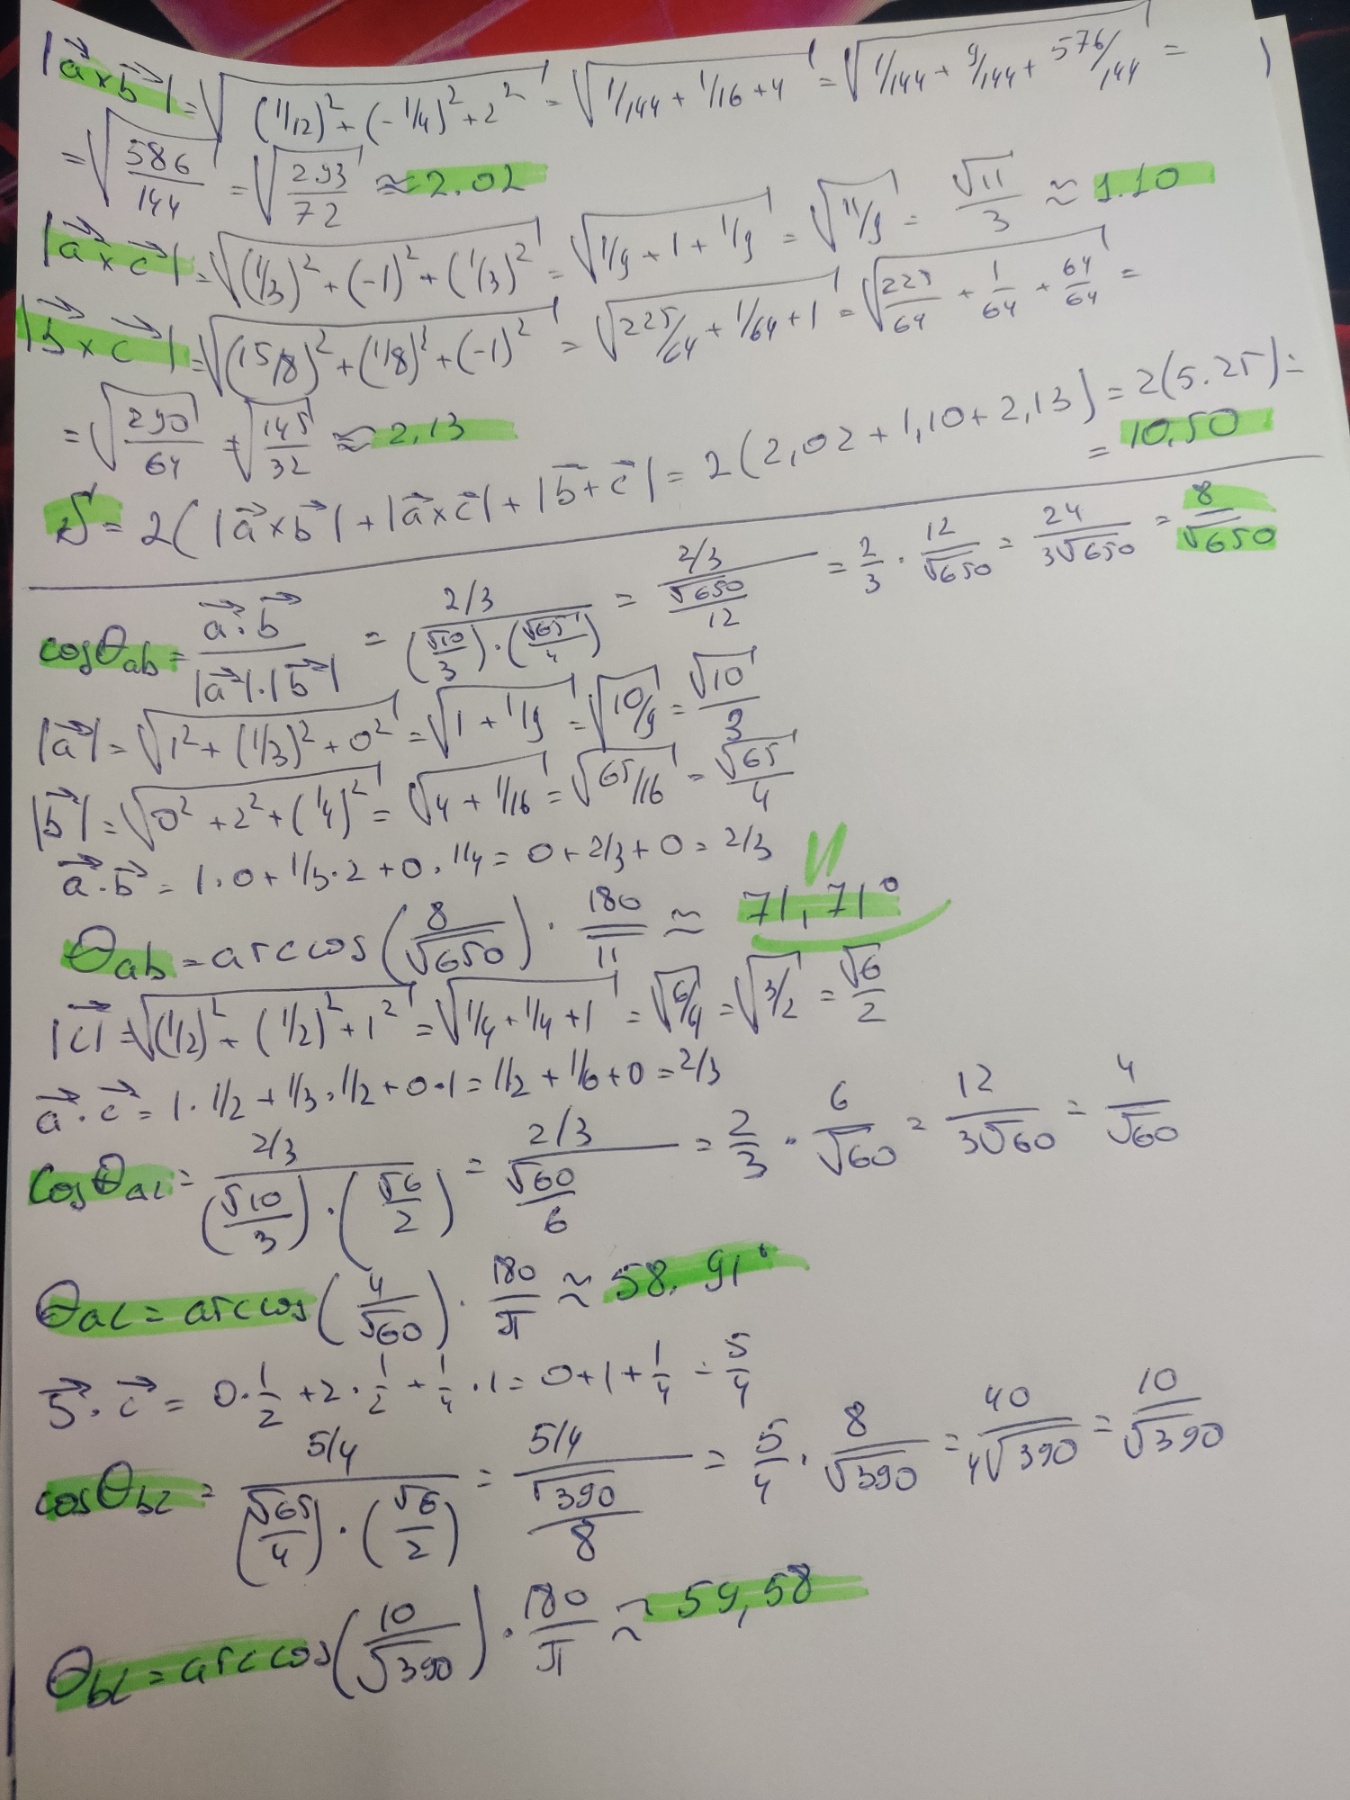 |a⃗×b⃗| = √((1/12)² + (-1/4)² + 2²) = √(1/144 + 1/16 + 4) = √(1/144 + 9/144 + 576/144) =
= √(586/144) = √(293/72) ≈ 2.02
|a⃗×c⃗| = √((1/3)² + (-1)² + (1/3)²) = √(1/9 + 1 + 1/9) = √(11/9) = √11/3 ≈ 1.10
|b⃗×c⃗| = √((15/8)² + (1/8)² + (-1)²) = √(225/64 + 1/64 + 1) = √(225/64 + 1/64 + 64/64) =
= √(290/64) = √(145/32) ≈ 2,13
S = 2(|a⃗×b⃗| + |a⃗×c⃗| + |b⃗+c⃗| = 2(2,02 + 1,10 + 2,13) = 2(5.25) =
= 10,50
cosθab = a⃗·b⃗/|a⃗|·|b⃗| = 2/3/(√10/3)·(√65/4) = 2/3/√650/12 = 2/3 · 12/√650 = 24/3√650 = 8/√650
|a⃗| = √(1² + (1/3)² + 0²) = √(1 + 1/9) = √(10/9) = √10/3
|b⃗| = √(0² + 2² + (1/4)²) = √(4 + 1/16) = √(65/16) = √65/4
a⃗·b⃗ = 1·0 + 1/3·2 + 0·1/4 = 0 + 2/3 + 0 = 2/3
θab = arccos(8/√650) · 180/π ≈ 71,71°
|c⃗| = √((1/2)² + (1/2)² + 1²) = √(1/4 + 1/4 + 1) = √(6/4) = √(3/2) = √6/2
a⃗·c⃗ = 1·1/2 + 1/3·1/2 + 0·1 = 1/2 + 1/6 + 0 = 2/3
cosθac = 2/3/(√10/3)·(√6/2) = 2/3/√60/6 = 2/3 · 6/√60 = 12/3√60 = 4/√60
θac = arccos(4/√60) · 180/π ≈ 58.91°
b⃗·c⃗ = 0·1/2 + 2·1/2 + 1/4·1 = 0 + 1 + 1/4 = 5/4
cosθbc = 5/4/(√65/4)·(√6/2) = 5/4/√390/8 = 5/4 · 8/√390 = 40/4√390 = 10/√390
θbc = arccos(10/√390) · 180/π ≈ 59,58